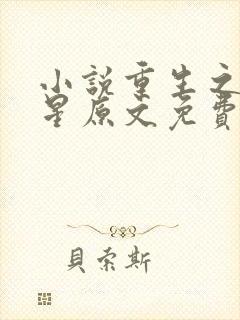 小說重生之
星原文免費
貝索斯